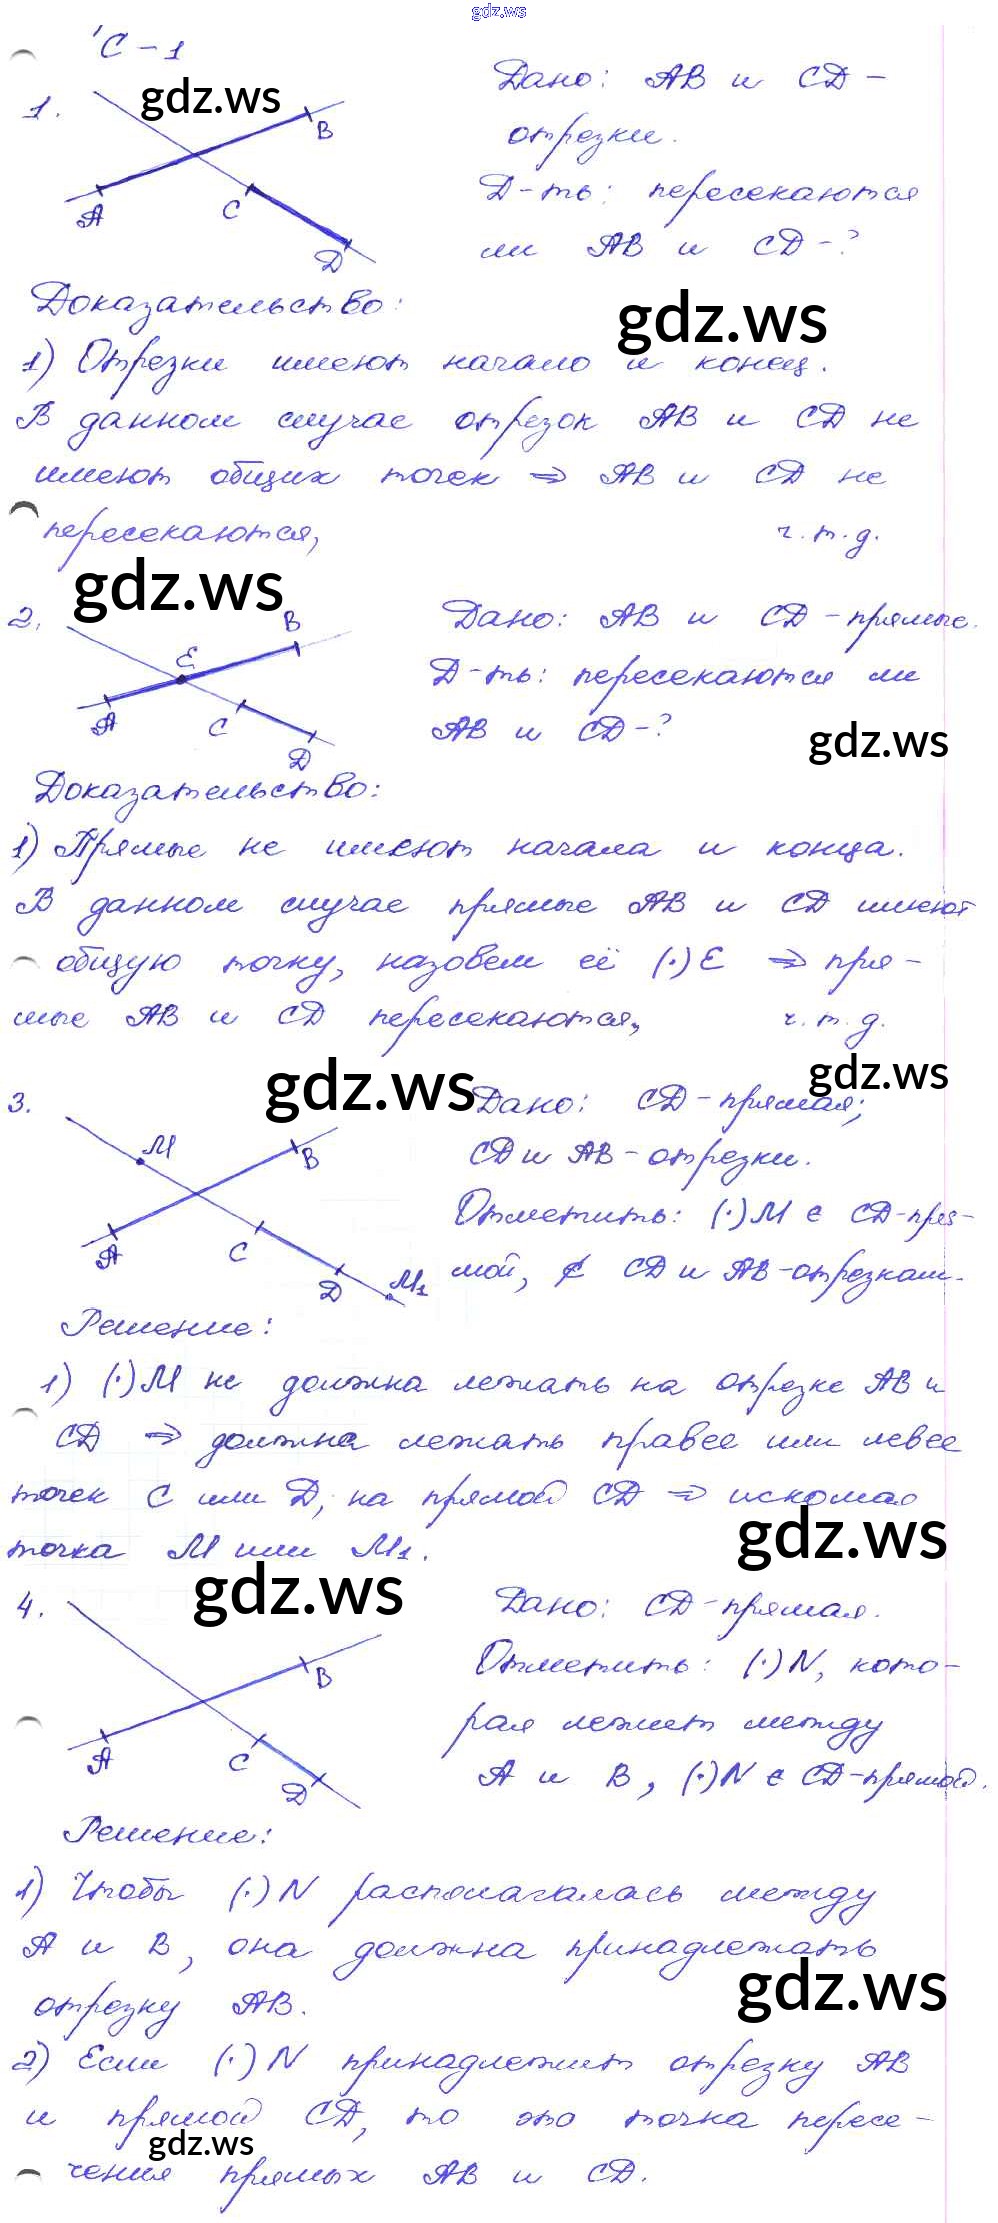 gdz.ws
С-1
gdz.ws
1.
A
B
C
D
Дано: AB и CD-
отрезки.
Д-ть: пересекаются
ли AB и CD-?
Доказательство:
gdz.ws
1) Отрезки имеют начало и конец.
В данном случае отрезок AB и CD не
имеют общих точек ⇒ AB и CD не
пересекаются, ч.т.д.
gdz.ws
2.
A
E
B
C
D
Дано: AB и CD-прямые.
Д-ть: пересекаются ли
AB и CD-?
gdz.ws
Доказательство:
1) Прямые не имеют начала и конца.
В данном случае прямые AB и CD имеют
общую точку, назовем её (·)E ⇒ пря-
мые AB и CD пересекаются, ч.т.д.
gdz.ws
gdz.ws
3.
M
A
B
C
D
M₁
Дано: CD-прямая;
CD и AB-отрезки.
Отметить: (·)M ∈ CD-пря-
мой, ∉ CD и AB-отрезкам.
Решение:
1) (·)M не должна лежать на отрезке AB и
CD ⇒ должна лежать правее или левее
точек C или D, на прямой CD ⇒ искомая
точка M или M₁.
gdz.ws
gdz.ws
4.
A
B
C
D
Дано: CD-прямая.
Отметить: (·)N, кото-
рая лежит между
A и B, (·)N ∈ CD-прямой.
Решение:
1) Чтобы (·)N располагалась между
A и B, она должна принадлежать
отрезку AB.
gdz.ws
2) Если (·)N принадлежит отрезку AB
и прямой CD, то это точка пересе-
gdz.ws
чения прямых AB и CD.